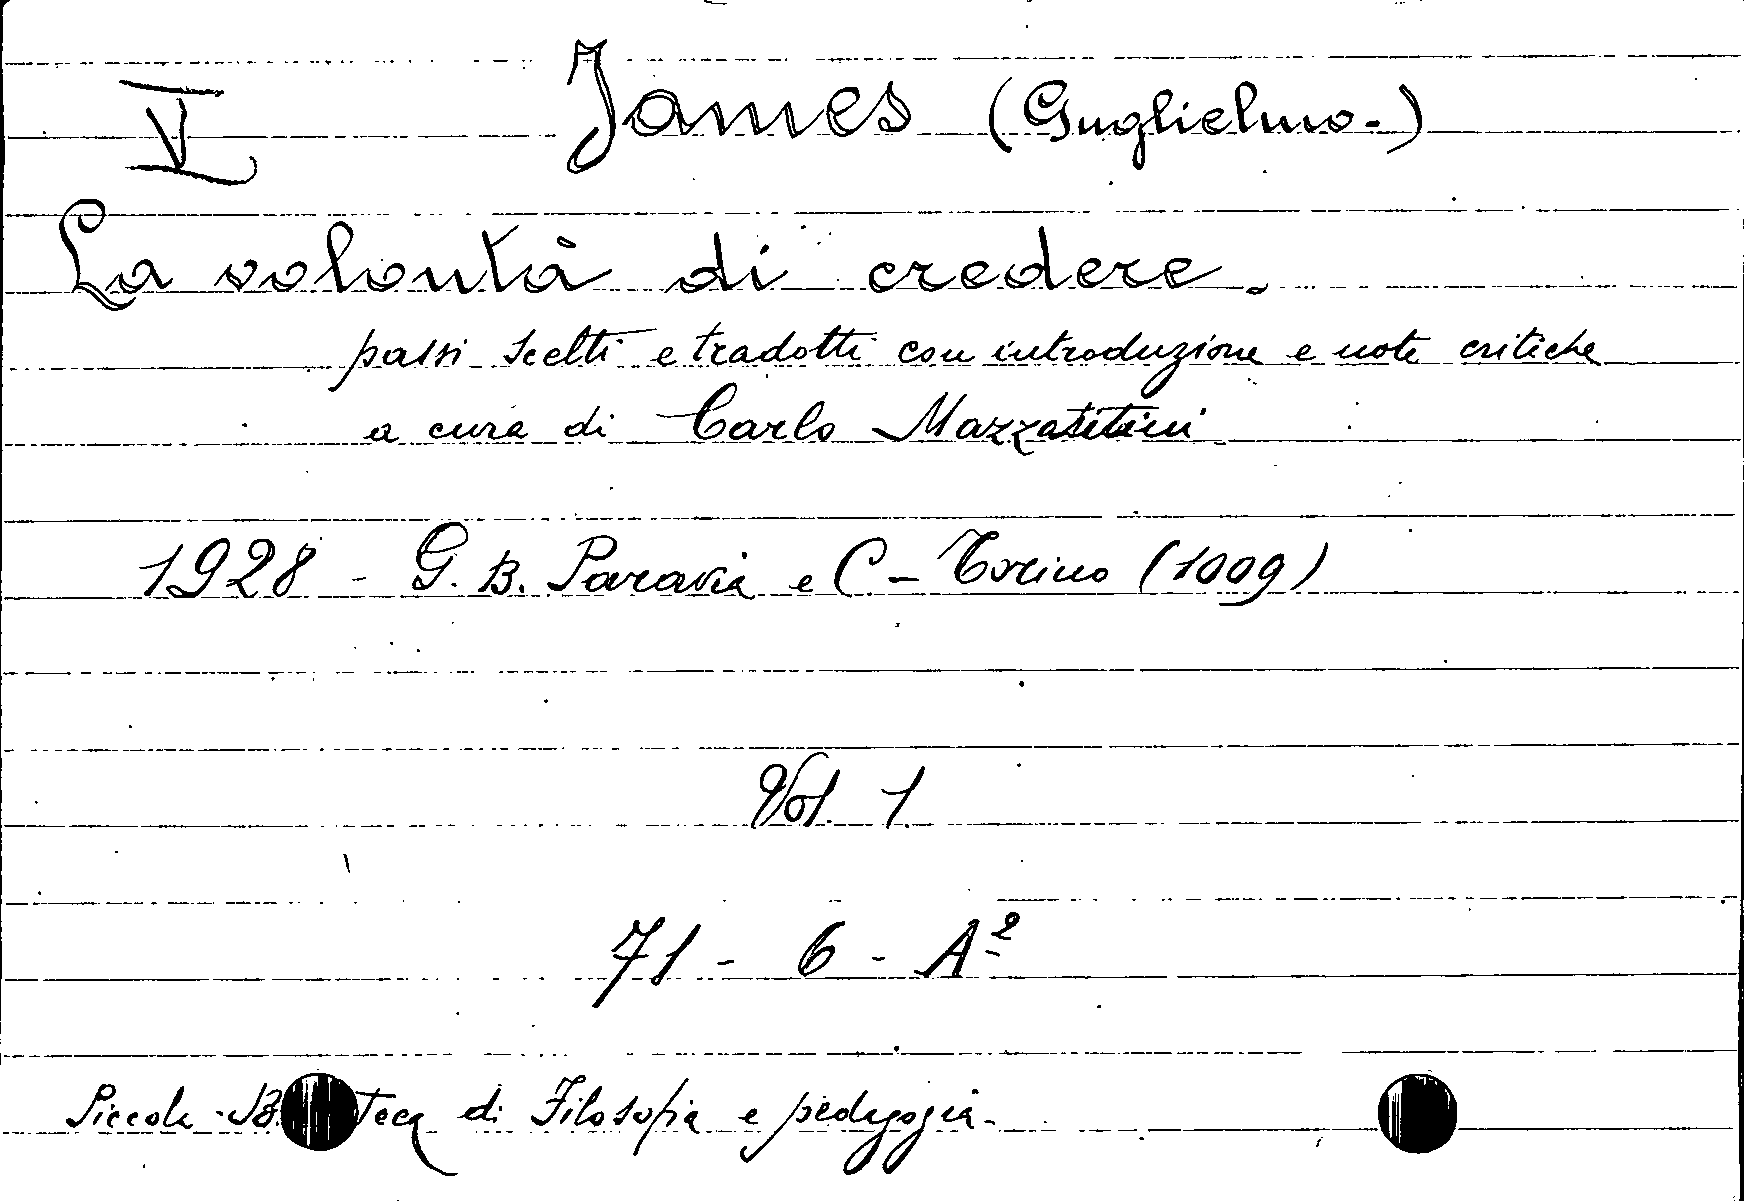 V James (Guglielmo-)
La volontà di credere.
passi scelti e tradotti con introduzione e note critiche
a cura di Carlo
1928 - G. B. Paravia e C - Torino (1009)
Vol. 1.
71 - 6 - A²
Piccola di Filosofia e pedagogia.